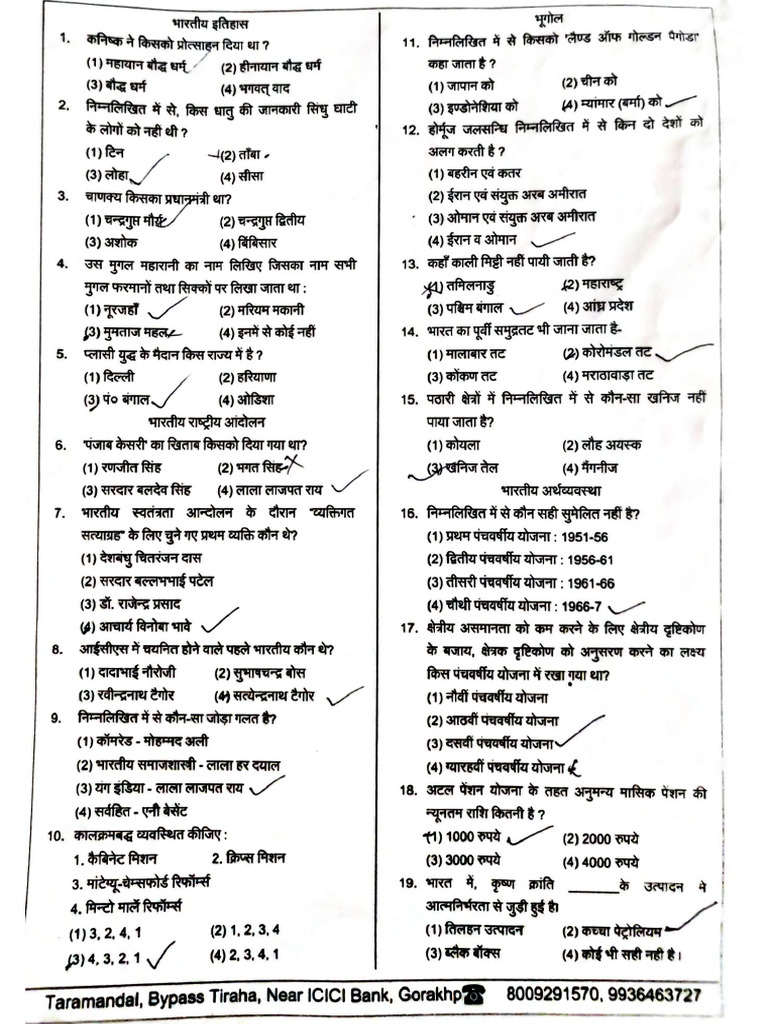 भारतीय इतिहास
1. कनिष्क ने किसको प्रोत्साहन दिया था ?
(1) महायान बौद्ध धर्म (2) हीनायान बौद्ध धर्म
(3) बौद्ध धर्म (4) भगवत् वाद
2. निम्नलिखित में से, किस धातु की जानकारी सिंधु घाटी
के लोगों को नहीं थी ?
(1) टिन (2) ताँबा
(3) लोहा (4) सीसा
3. चाणक्य किसका प्रधानमंत्री था?
(1) चन्द्रगुप्त मौर्य (2) चन्द्रगुप्त द्वितीय
(3) अशोक (4) बिंबिसार
4. उस मुगल महारानी का नाम लिखिए जिसका नाम सभी
मुगल फरमानों तथा सिक्कों पर लिखा जाता था :
(1) नूरजहाँ (2) मरियम मकानी
(3) मुमताज महल (4) इनमें से कोई नहीं
5. प्लासी युद्ध के मैदान किस राज्य में है ?
(1) दिल्ली (2) हरियाणा
(3) पं० बंगाल (4) ओडिशा
भारतीय राष्ट्रीय आंदोलन
6. 'पंजाब केसरी' का खिताब किसको दिया गया था?
(1) रणजीत सिंह (2) भगत सिंह
(3) सरदार बलदेव सिंह (4) लाला लाजपत राय
7. भारतीय स्वतंत्रता आन्दोलन के दौरान "व्यक्तिगत
सत्याग्रह" के लिए चुने गए प्रथम व्यक्ति कौन थे?
(1) देशबंधु चितरंजन दास
(2) सरदार बल्लभभाई पटेल
(3) डॉ. राजेन्द्र प्रसाद
(4) आचार्य विनोबा भावे
8. आईसीएस में चयनित होने वाले पहले भारतीय कौन थे?
(1) दादाभाई नौरोजी (2) सुभाषचन्द्र बोस
(3) रवीन्द्रनाथ टैगोर (4) सत्येन्द्रनाथ टैगोर
9. निम्नलिखित में से कौन-सा जोड़ा गलत है?
(1) कॉमरेड - मोहम्मद अली
(2) भारतीय समाजशास्त्री - लाला हर दयाल
(3) यंग इंडिया - लाला लाजपत राय
(4) सर्वहित - एनी बेसेंट
10. कालक्रमबद्ध व्यवस्थित कीजिए :
1. कैबिनेट मिशन 2. क्रिप्स मिशन
3. मांटेग्यू-चेम्सफोर्ड रिफॉर्म्स
4. मिन्टो मार्ले रिफॉर्म्स
(1) 3, 2, 4, 1 (2) 1, 2, 3, 4
(3) 4, 3, 2, 1 (4) 2, 3, 4, 1
भूगोल
11. निम्नलिखित में से किसको 'लैण्ड ऑफ गोल्डन पैगोडा'
कहा जाता है ?
(1) जापान को (2) चीन को
(3) इण्डोनेशिया को (4) म्यांमार (बर्मा) को
12. होर्मूज जलसन्धि निम्नलिखित में से किन दो देशों को
अलग करती है ?
(1) बहरीन एवं कतर
(2) ईरान एवं संयुक्त अरब अमीरात
(3) ओमान एवं संयुक्त अरब अमीरात
(4) ईरान व ओमान
13. कहाँ काली मिट्टी नहीं पायी जाती है?
(1) तमिलनाडु (2) महाराष्ट्र
(3) पश्चिम बंगाल (4) आंध्र प्रदेश
14. भारत का पूर्वी समुद्रतट भी जाना जाता है-
(1) मालाबार तट (2) कोरोमंडल तट
(3) कोंकण तट (4) मराठावाड़ा तट
15. पठारी क्षेत्रों में निम्नलिखित में से कौन-सा खनिज नहीं
पाया जाता है?
(1) कोयला (2) लौह अयस्क
(3) खनिज तेल (4) मैंगनीज
भारतीय अर्थव्यवस्था
16. निम्नलिखित में से कौन सही सुमेलित नहीं है?
(1) प्रथम पंचवर्षीय योजना : 1951-56
(2) द्वितीय पंचवर्षीय योजना : 1956-61
(3) तीसरी पंचवर्षीय योजना : 1961-66
(4) चौथी पंचवर्षीय योजना : 1966-7
17. क्षेत्रीय असमानता को कम करने के लिए क्षेत्रीय दृष्टिकोण
के बजाय, क्षेत्रक दृष्टिकोण को अनुसरण करने का लक्ष्य
किस पंचवर्षीय योजना में रखा गया था?
(1) नौवीं पंचवर्षीय योजना
(2) आठवीं पंचवर्षीय योजना
(3) दसवीं पंचवर्षीय योजना
(4) ग्यारहवीं पंचवर्षीय योजना
18. अटल पेंशन योजना के तहत अनुमन्य मासिक पेंशन की
न्यूनतम राशि कितनी है ?
(1) 1000 रुपये (2) 2000 रुपये
(3) 3000 रुपये (4) 4000 रुपये
19. भारत में, कृष्ण क्रांति ________के उत्पादन मे
आत्मनिर्भरता से जुड़ी हुई है।
(1) तिलहन उत्पादन (2) कच्चा पेट्रोलियम
(3) ब्लैक बॉक्स (4) कोई भी सही नही है।
Taramandal, Bypass Tiraha, Near ICICI Bank, Gorakhp☎ 8009291570, 9936463727